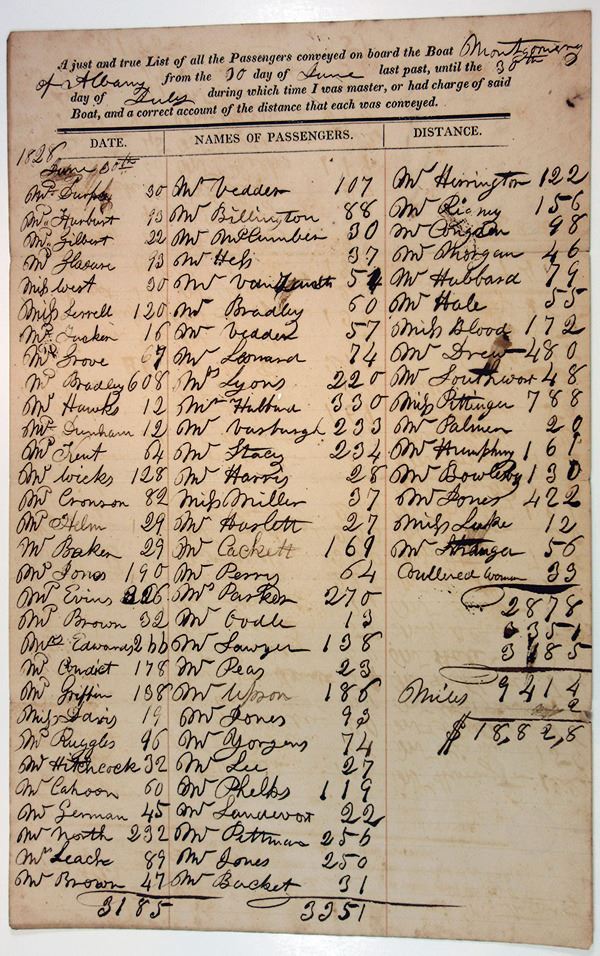 A just and true List of all the Passengers conveyed on board the Boat Montgomery
of Albany from the 30 day of June last past, until the 30th
day of July during which time I was master, or had charge of said
Boat, and a correct account of the distance that each was conveyed.
DATE. NAMES OF PASSENGERS. DISTANCE.
1828
June 30th
Mr 30
Mr Hurburt 93
Mr Gilbert 22
Mr 93
Miss West 30
Miss Serrell 120
Mr 16
Mr Grove 67
Mr Bradley 608
Mr Hawks 12
Mr Dunham 12
Mr Trent 64
Mr Wicks 128
Mr Cronson 82
Mr Helm 29
Mr Baker 29
Mr Jones 190
Mr Evins 226
Mr Brown 32
Mrs Edwards 266
Mr Condict 178
Mr Griffin 138
Miss Davis 19
Mr Ruggles 96
Mr Hitchcock 32
Mr Cahoon 60
Mr German 45
Mr North 232
Mr Leach 89
Mr Brown 47
3185
Mr Vedder 107
Mr Billington 88
Mr McCumber 30
Mr Hess 37
Mr 54
Mr Bradley 60
Mr Vedder 57
Mr Leonard 74
Mrs Lyons 220
Mr Hubbard 330
Mr Vosburgh 233
Mr Stacy 234
Mr Harris 28
Miss Miller 37
Mr Haslett 27
Mr Cackett 169
Mr Perry 64
Mr Parker 270
Mr Oodle 13
Mr Sawyer 138
Mr Peas 23
Mr Upson 186
Mr Jones 93
Mr Yorgens 74
Mr Lee 27
Mr Phelks 119
Mr Landevor 22
Mr Pittman 256
Mr Jones 250
Mr Backet 31
3351
Mr Herrington 122
Mr 156
Mr 98
Mr Morgan 46
Mr Hubbard 79
Mr Hale 55
Miss Blood 172
Mr Drew 480
Mr Southwor 48
Miss Pittinger 788
Mr Palmer 20
Mr Humphry 161
Mr Bowlsby 130
Mr Jones 422
Miss Luke 12
Mr Stranger 56
Coullered Woman 33
2878
3351
3185
Miles 9414
2
$18,82,8